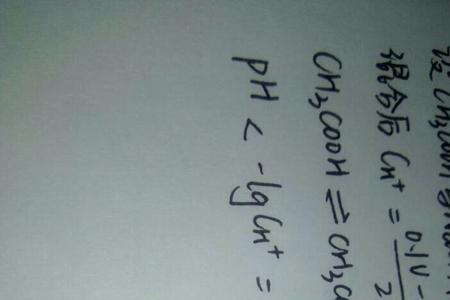 设CH₃COOH
混合后 C_H⁺ = 0.1V - / 2
CH₃COOH ⇌ CH₃C
pH < -lg C_H⁺ =